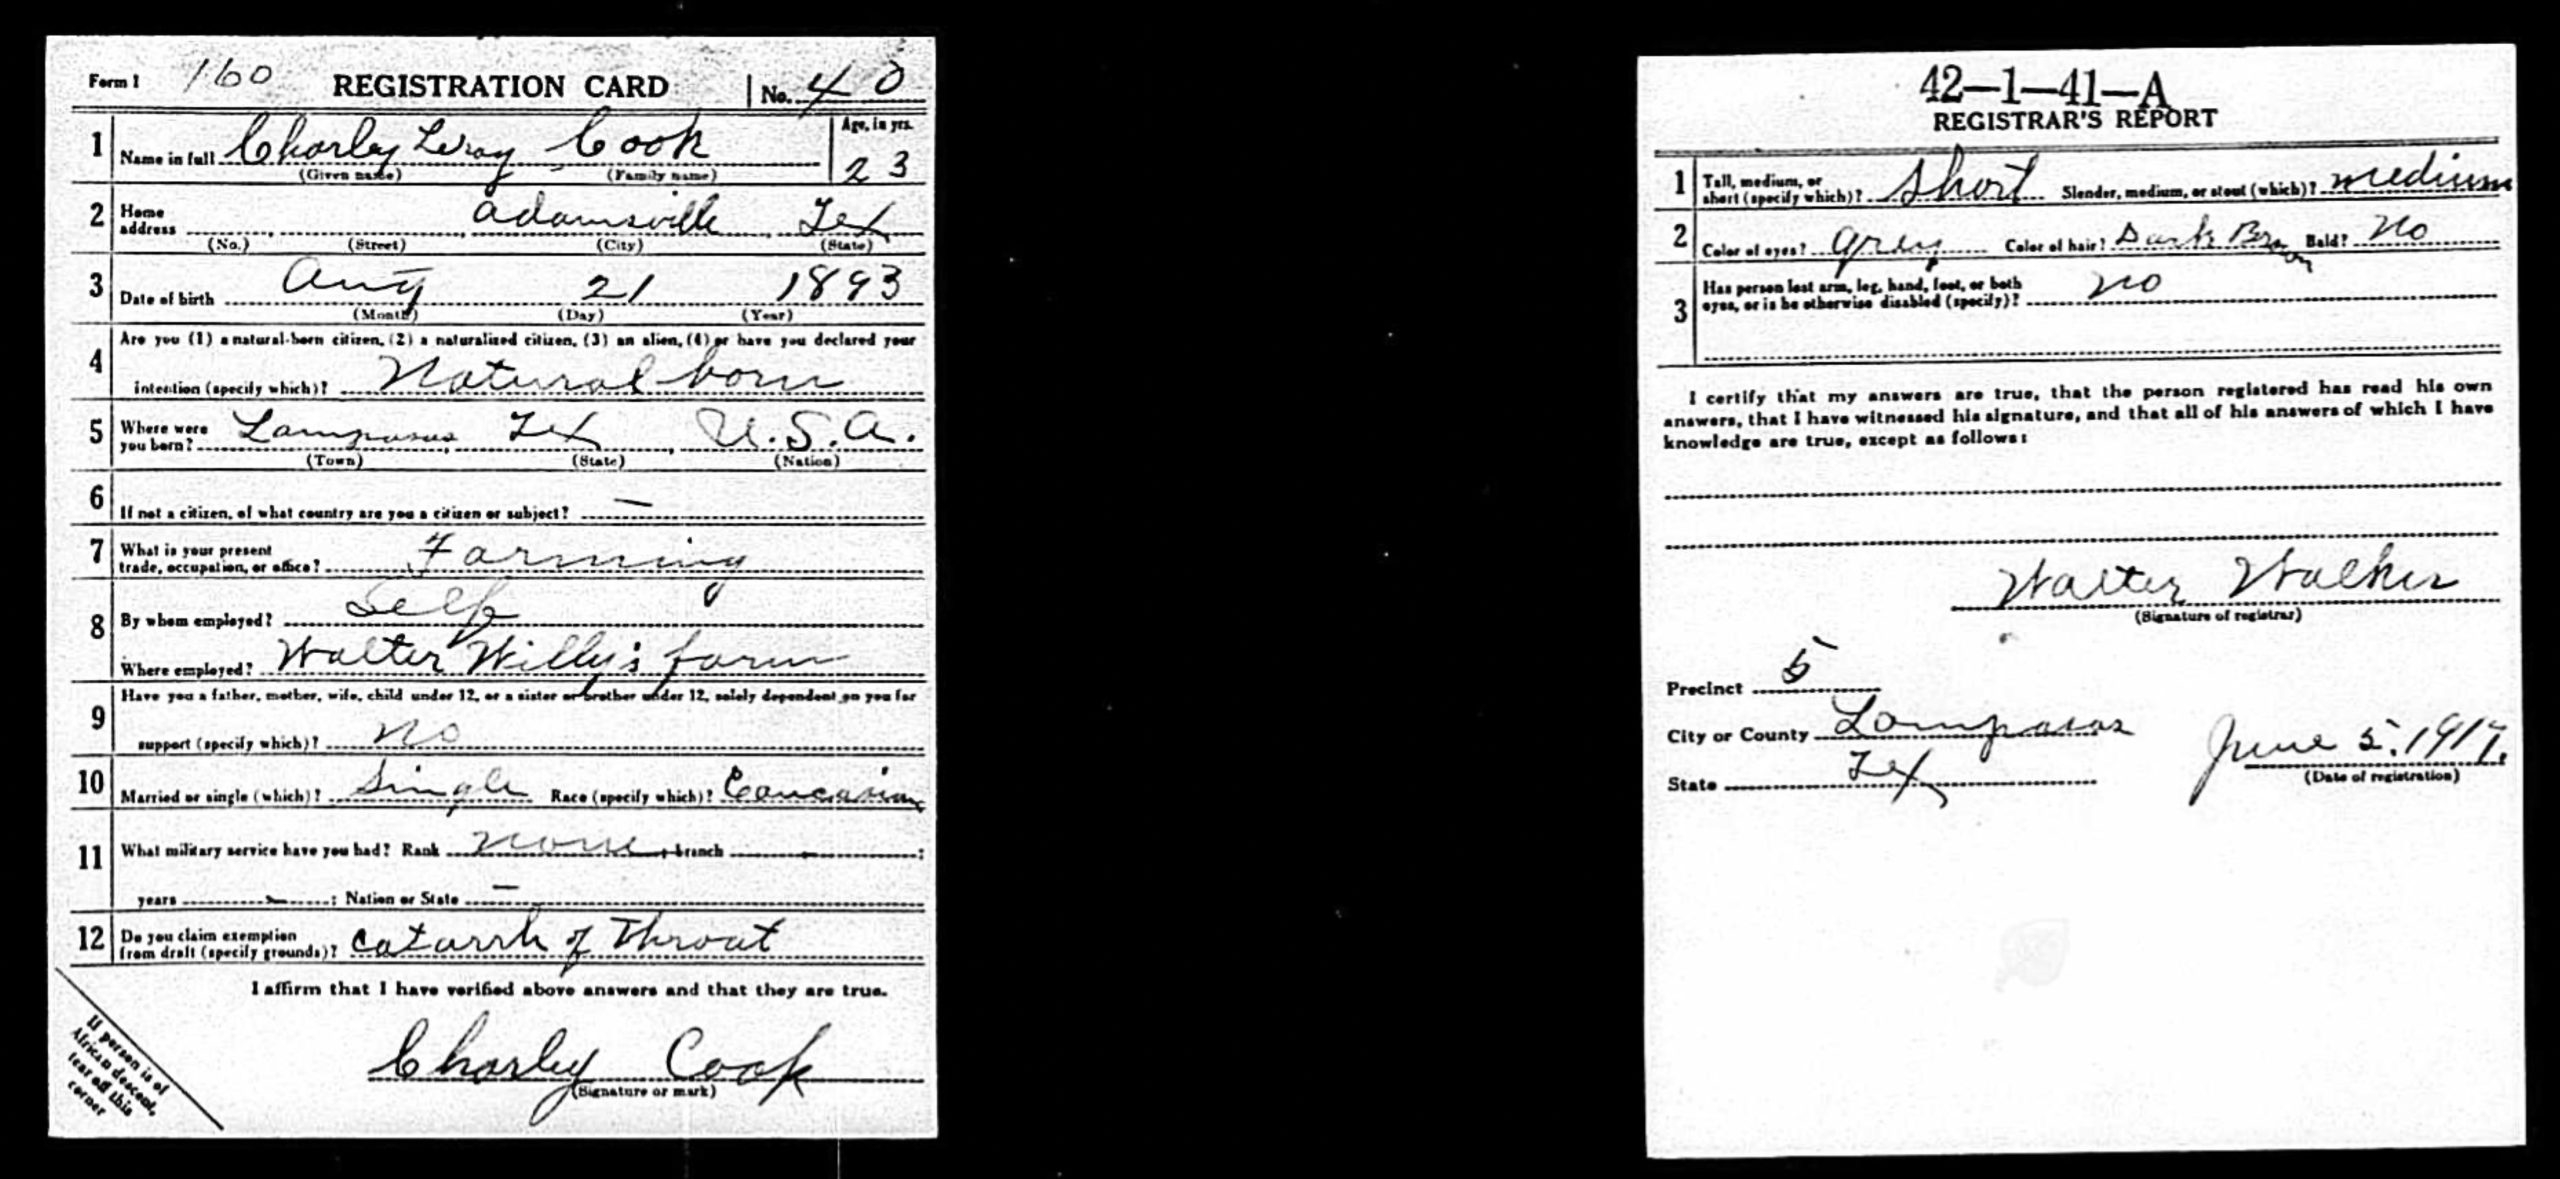 Form 1 160 REGISTRATION CARD No. 40
1 Name in full Charley Leroy Cook Age, in yrs. 23
(Given name) (Family name)
2 Home address Adamsville Tex
(No.) (Street) (City) (State)
3 Date of birth Aug 21 1893
(Month) (Day) (Year)
4 Are you (1) a natural-born citizen, (2) a naturalized citizen, (3) an alien, (4) or have you declared your
intention (specify which)? Natural born
5 Where were you born? Lampasas Tex U.S.A.
(Town) (State) (Nation)
6 If not a citizen, of what country are you a citizen or subject? —
7 What is your present trade, occupation, or office? Farming
8 By whom employed? Self
Where employed? Walter Willy's farm
9 Have you a father, mother, wife, child under 12, or a sister or brother under 12, solely dependent on you for
support (specify which)? No
10 Married or single (which)? Single Race (specify which)? Caucasian
11 What military service have you had? Rank None, branch —;
years —; Nation or State —
12 Do you claim exemption from draft (specify grounds)? Catarrh of Throat
I affirm that I have verified above answers and that they are true.
Charley Cook
(Signature or mark)
If person is of
African descent,
tear off this
corner
42—1—41—A
REGISTRAR'S REPORT
1 Tall, medium, or short (specify which)? Short Slender, medium, or stout (which)? medium
2 Color of eyes? Grey Color of hair? Dark Brown Bald? No
3 Has person lost arm, leg, hand, foot, or both eyes, or is he otherwise disabled (specify)? No
I certify that my answers are true, that the person registered has read his own
answers, that I have witnessed his signature, and that all of his answers of which I have
knowledge are true, except as follows:
Walter Walker
(Signature of registrar)
Precinct 5
City or County Lampasas
State Tex
June 5, 1917.
(Date of registration)